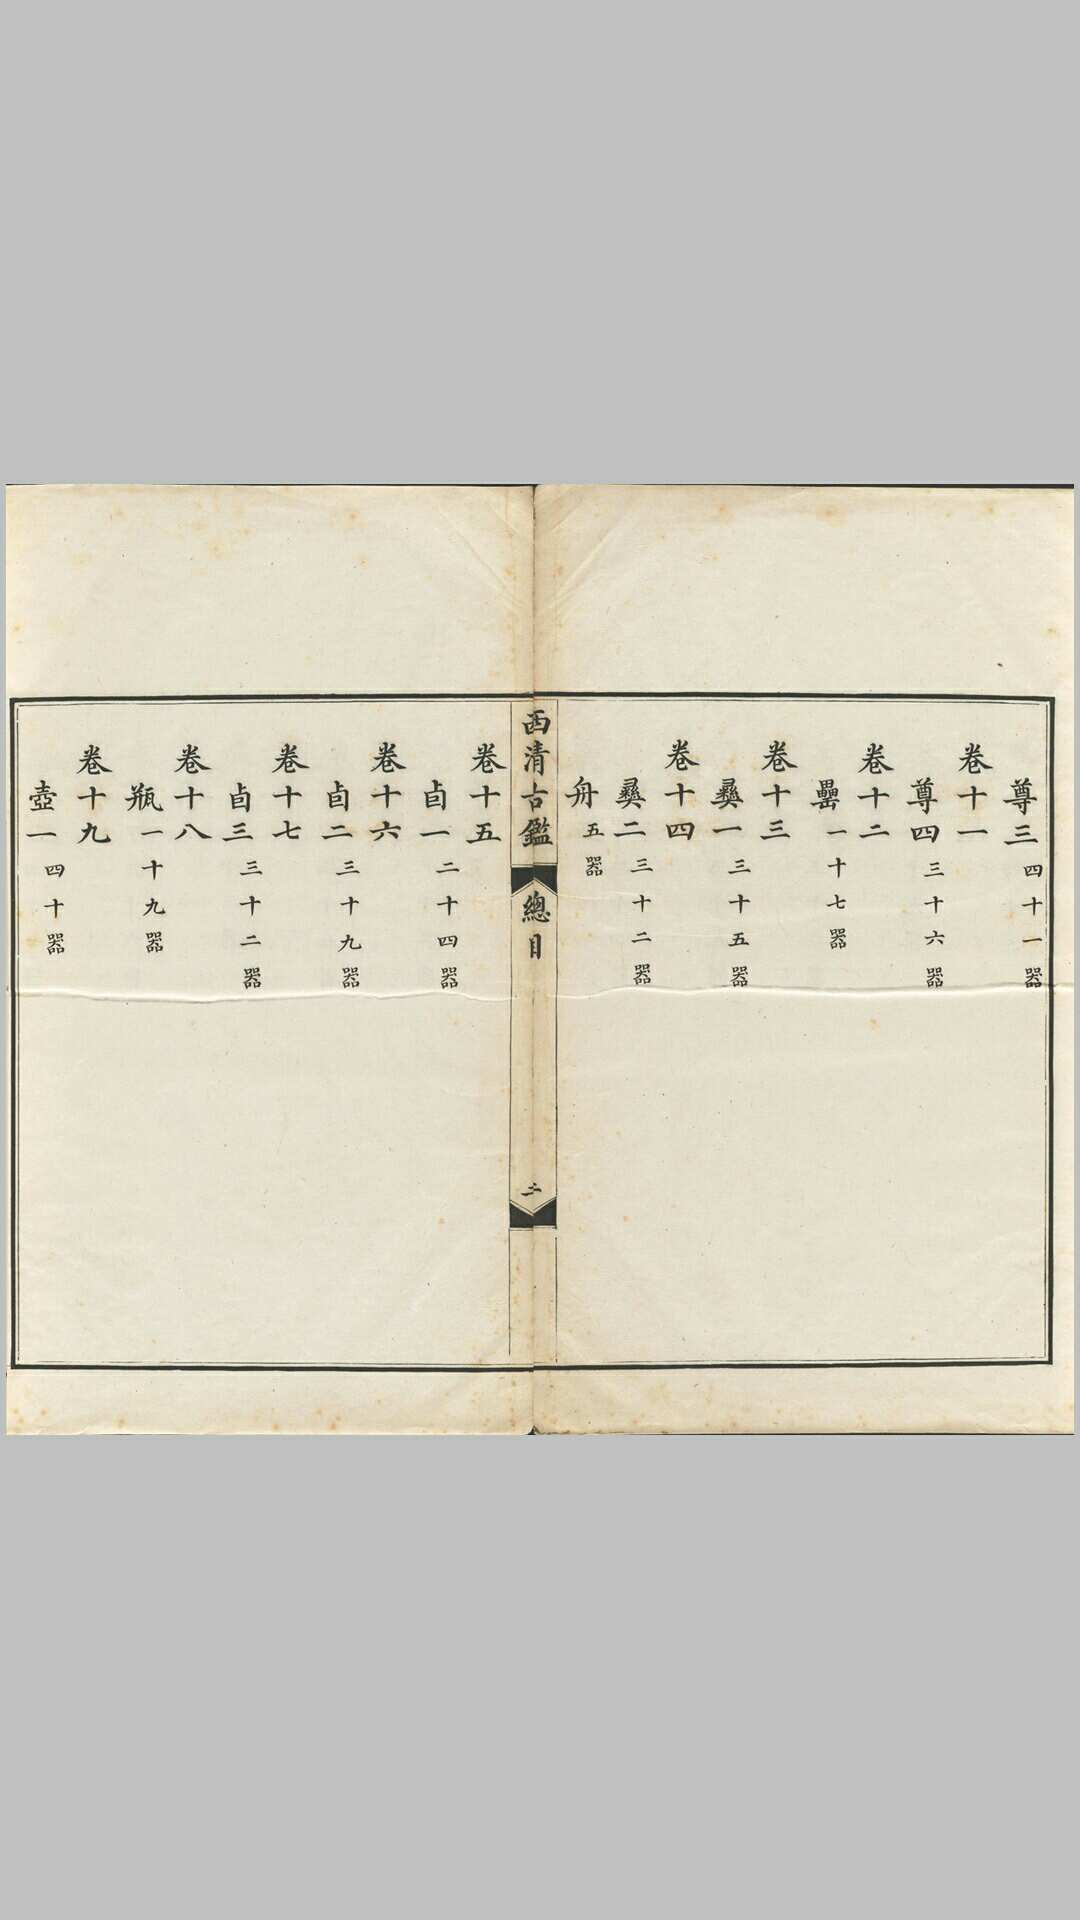 尊三 四十一器
卷十一
尊四 三十六器
卷十二
罍一 十七器
卷十三
彝一 三十五器
卷十四
彝二 三十二器
舟 五器
西清古鑑 總目 二
卷十五
卣一 二十四器
卷十六
卣二 三十九器
卷十七
卣三 三十二器
卷十八
瓶一 十九器
卷十九
壺一 四十器